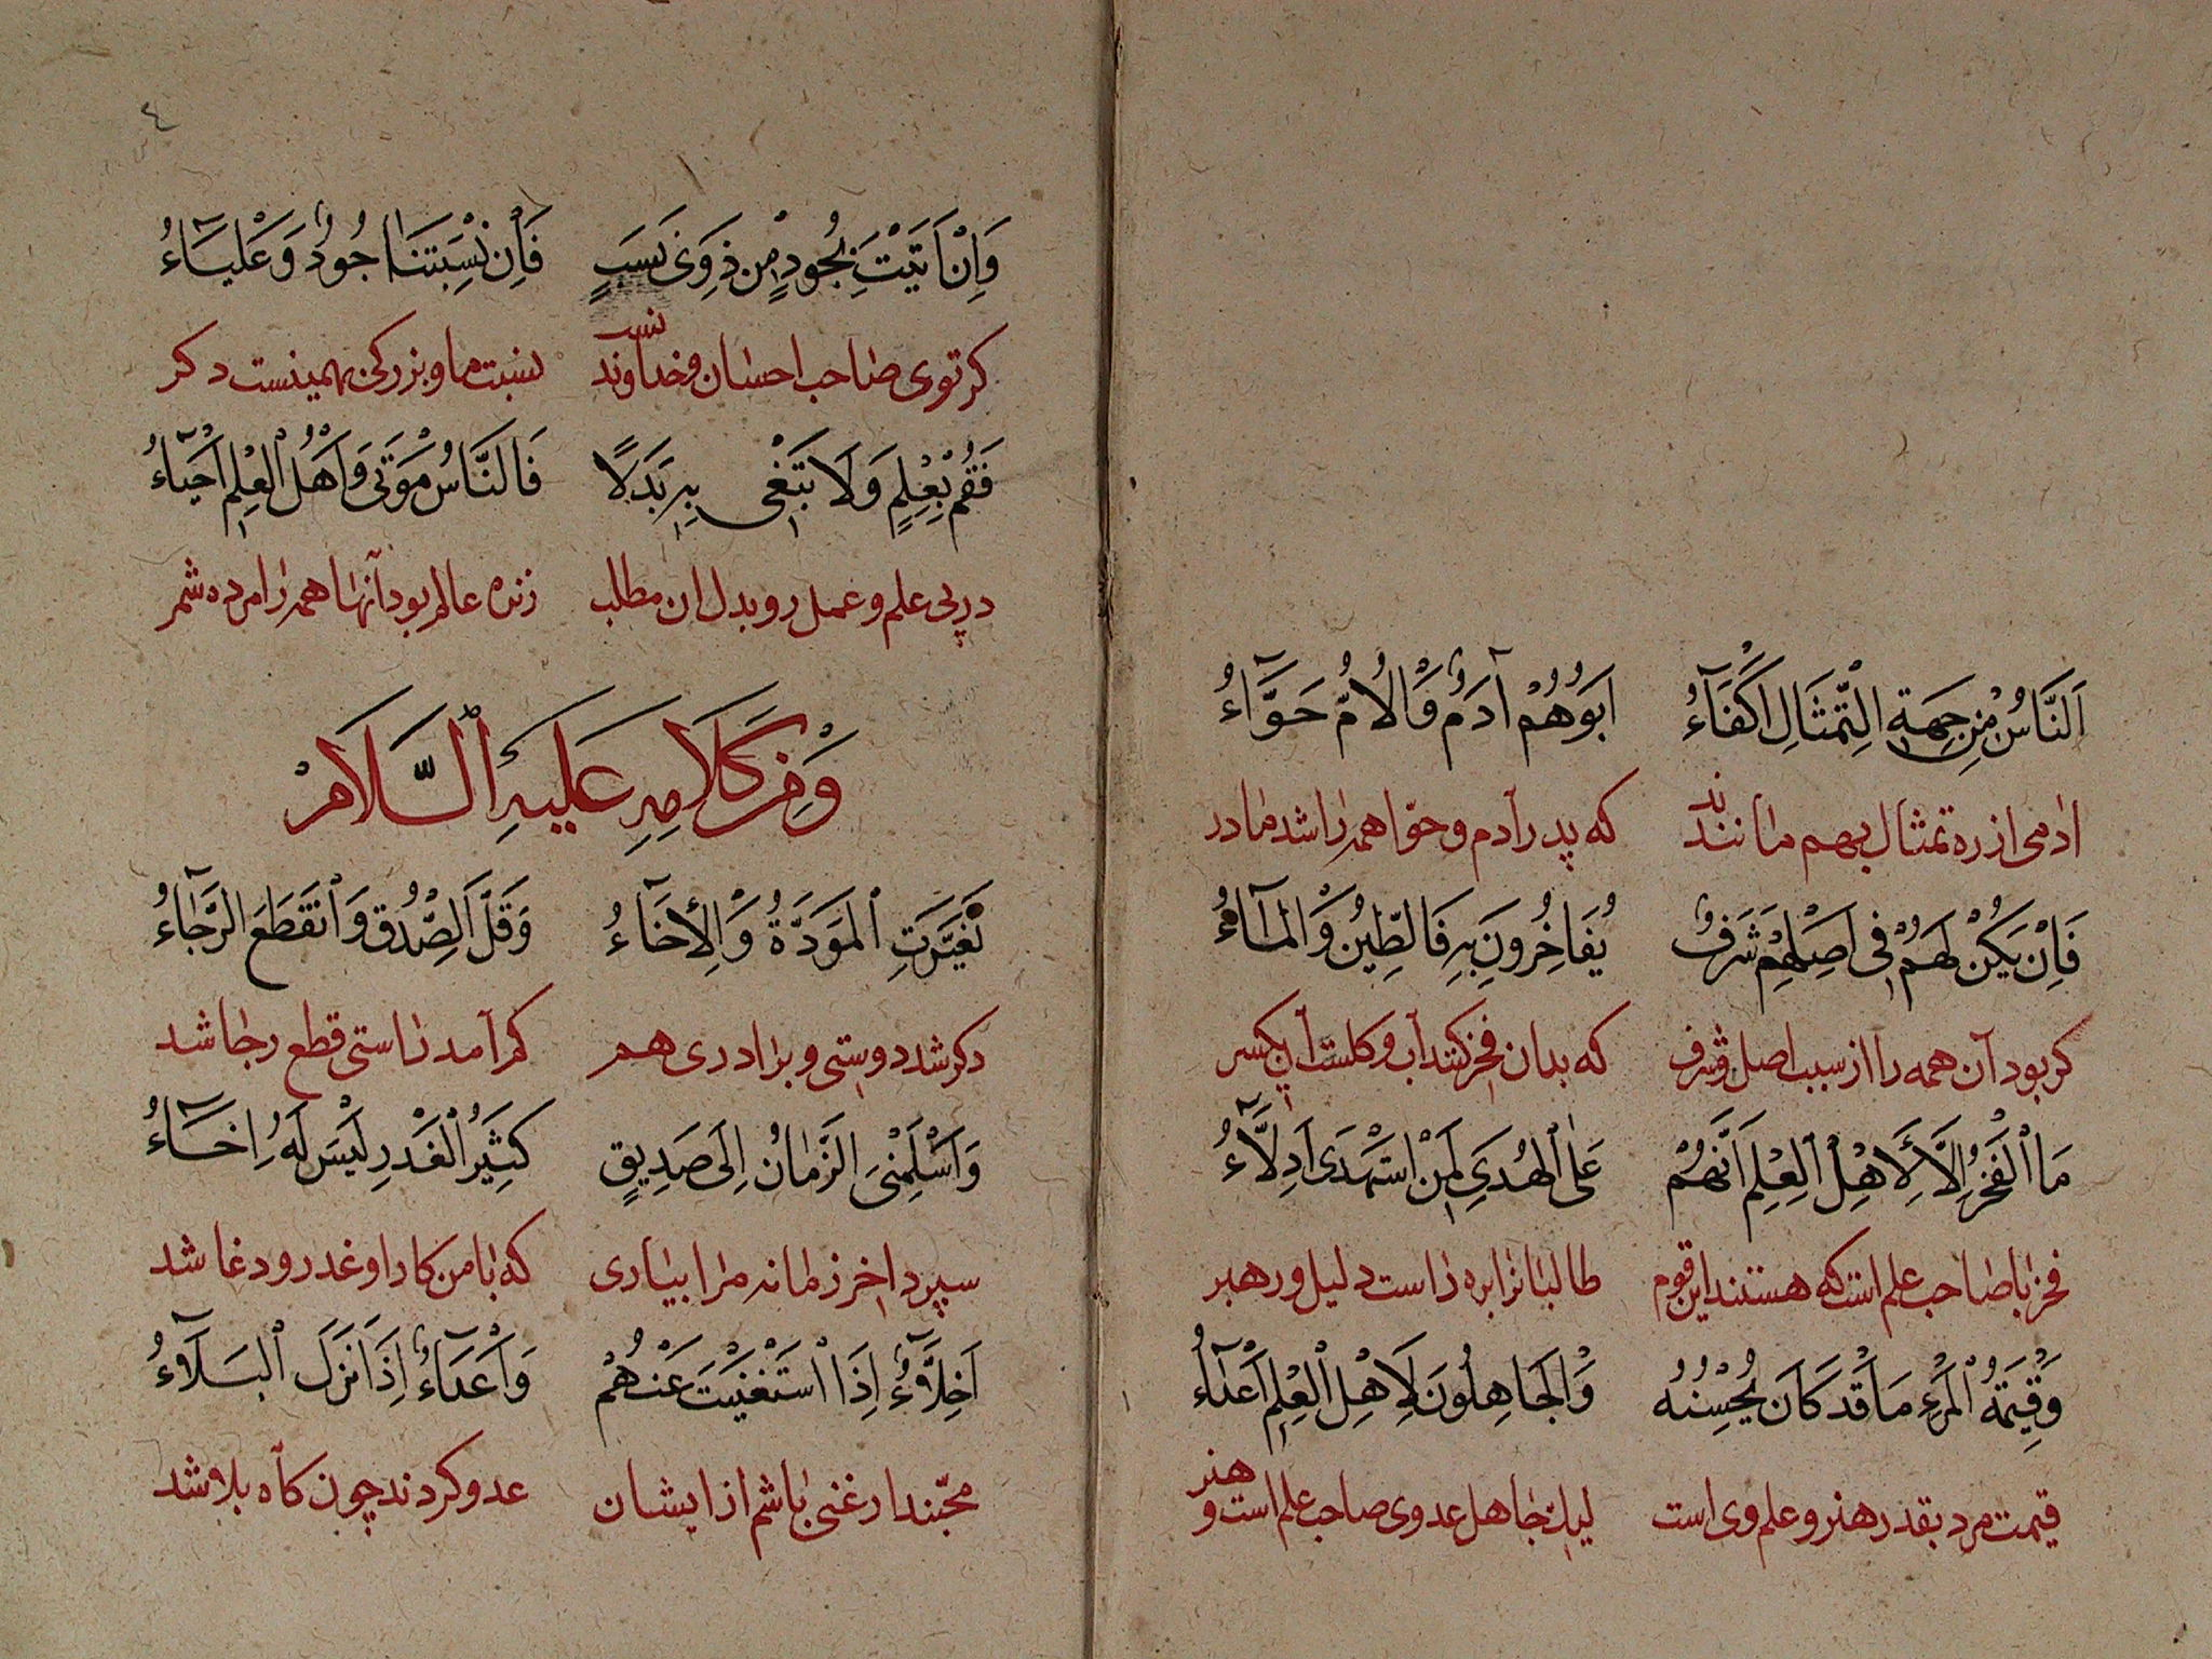 اَلنَّاسُ مِنْ جِهَةِ التِّمْثَالِ اَكْفَآءُ اَبُوهُمْ آدَمُ وَالْاُمُّ حَوَّآءُ
ادمی از ره تمثال بهم مانندند که پدر آدم و حوّا همه را شد مادر
فَاِنْ يَكُنْ لَهُمْ فِى اَصْلِهِمْ شَرَفٌ يُفَاخِرُونَ بِهِ فَالطِّينُ وَالْمَآءُ
کر بود آن همه را از سبب اصل شرف که بدان فخر کنند آب و کلست آن یکسر
مَا الْفَخْرُ اِلَّا لِاَهْلِ الْعِلْمِ اَنَّهُمْ عَلَى الْهُدَى لِمَنِ اسْتَهْدَى اَدِلَّآءُ
فخر با صاحب علم است که هستند این قوم طالبانرا بره راست دلیل و رهبر
وَقِيمَةُ الْمَرْءِ مَا قَدْ كَانَ يُحْسِنُهُ وَالْجَاهِلُونَ لِاَهْلِ الْعِلْمِ اَعْدَآءُ
قیمت مرد بقدر هنر و علم وی است لیک جاهل عدوی صاحب علم است و هنر
٤
وَاِنْ اَتَيْتَ بِجُودٍ مِنْ ذَوِى نَسَبٍ فَاِنَّ نِسْبَتَنَا جُودٌ وَعَلْيَآءُ
کر توی صاحب احسان و خداوند نسب نسبت ما و بزرکی همینست دکر
فَقُمْ بِعِلْمٍ وَلَا تَبْغِى بِهِ بَدَلًا فَالنَّاسُ مَوْتَى وَاَهْلُ الْعِلْمِ اَحْيَآءُ
در پی علم و عمل رو بدل ان مطلب زنده عالم بود آنها همه را مرده شمر
وَمِنْ كَلَامِهِ عَلَيْهِ السَّلَامْ
تَغَيَّرَتِ الْمَوَدَّةُ وَالْاِخَآءُ وَقَلَّ الصِّدْقُ وَانْقَطَعَ الرَّجَآءُ
دکر شد دوستی و برادری هم کم آمد راستی قطع رجا شد
وَاَسْلَمَنِى الزَّمَانُ اِلَى صَدِيقٍ كَثِيرِ الْغَدْرِ لَيْسَ لَهُ اِخَآءُ
سپرد اخر زمانه مرا بیاری که با من کار او غدر و دغا شد
اَخِلَّآءُ اِذَا اسْتَغْنَيْتَ عَنْهُمْ وَاَعْدَآءُ اِذَا نَزَلَ الْبَلَآءُ
محبّند ار غنی باشم از ایشان عدو کردند چون کاه بلا شد